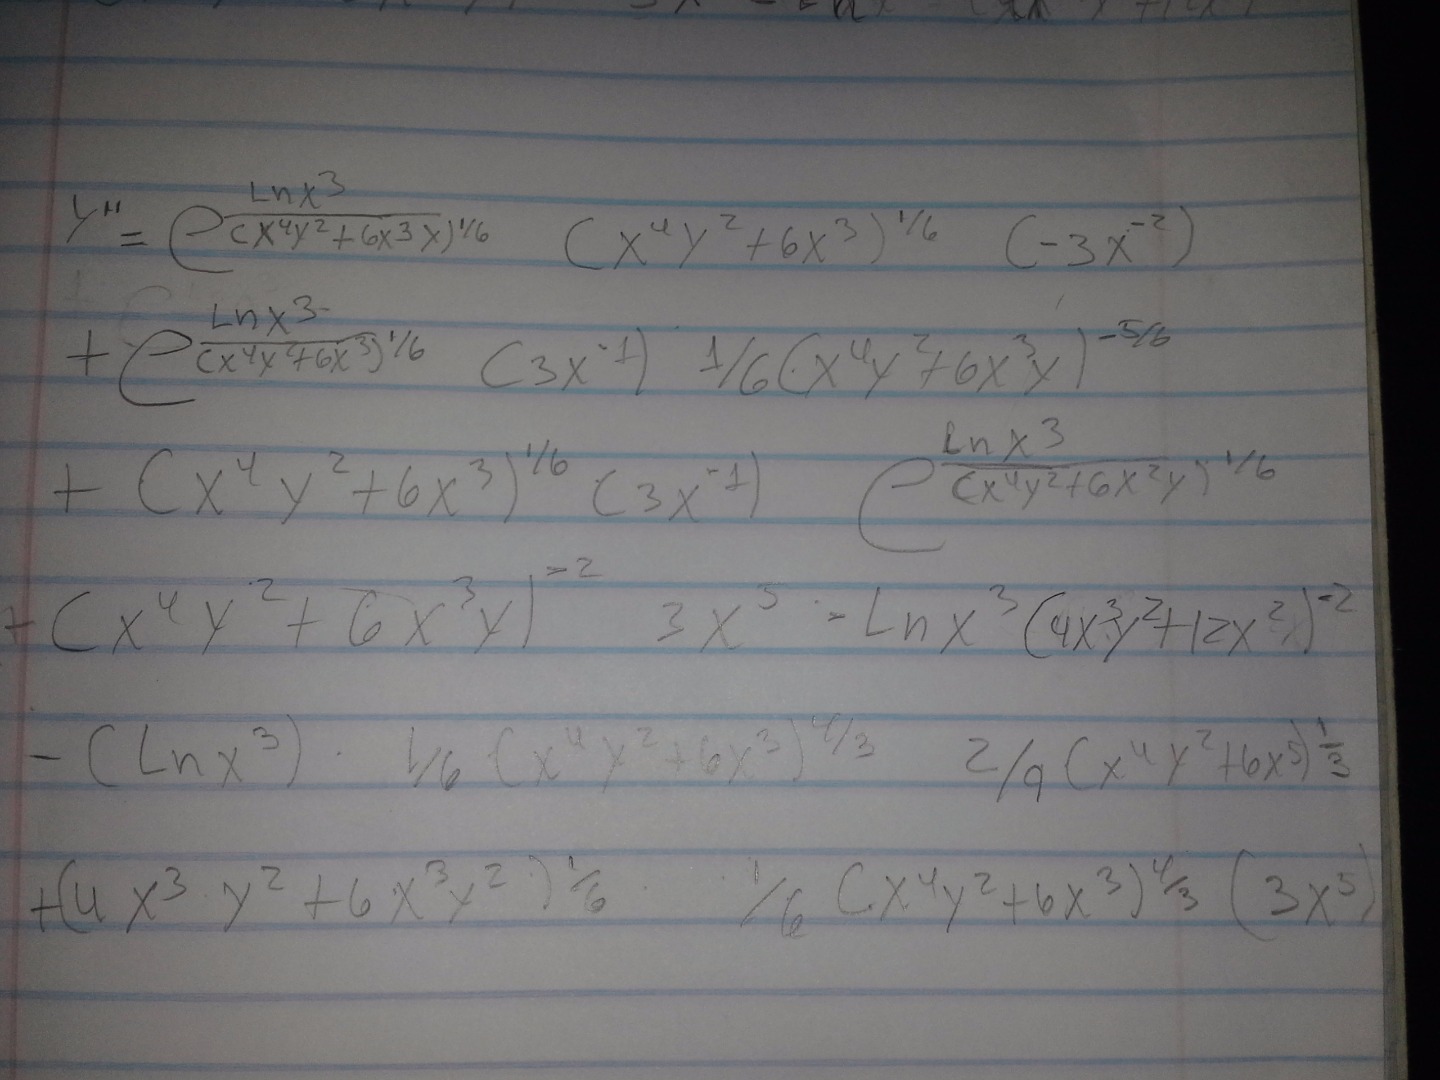 y'' = e^(Lnx^3/(x^4y^2+6x^3x)^1/6) (x^4y^2+6x^3)^1/6 (-3x^-2)
+ e^(Lnx^3/(x^4y^2+6x^3)^1/6) (3x^-1) 1/6(x^4y^2+6x^3y)^-5/6
+ (x^4y^2+6x^3)^1/6 (3x^-1) e^(Lnx^3/(x^4y^2+6x^2y)^1/6)
+ (x^4y^2+6x^3y)^-2 3x^5 - Lnx^3(4x^3y^2+12x^2)^-2
- (Lnx^3) · 1/6(x^4y^2+6x^3)^4/3 2/9(x^4y^2+6x^5)^1/3
+(4x^3y^2+6x^3y^2)^1/6 · 1/6(x^4y^2+6x^3)^4/3 (3x^5)